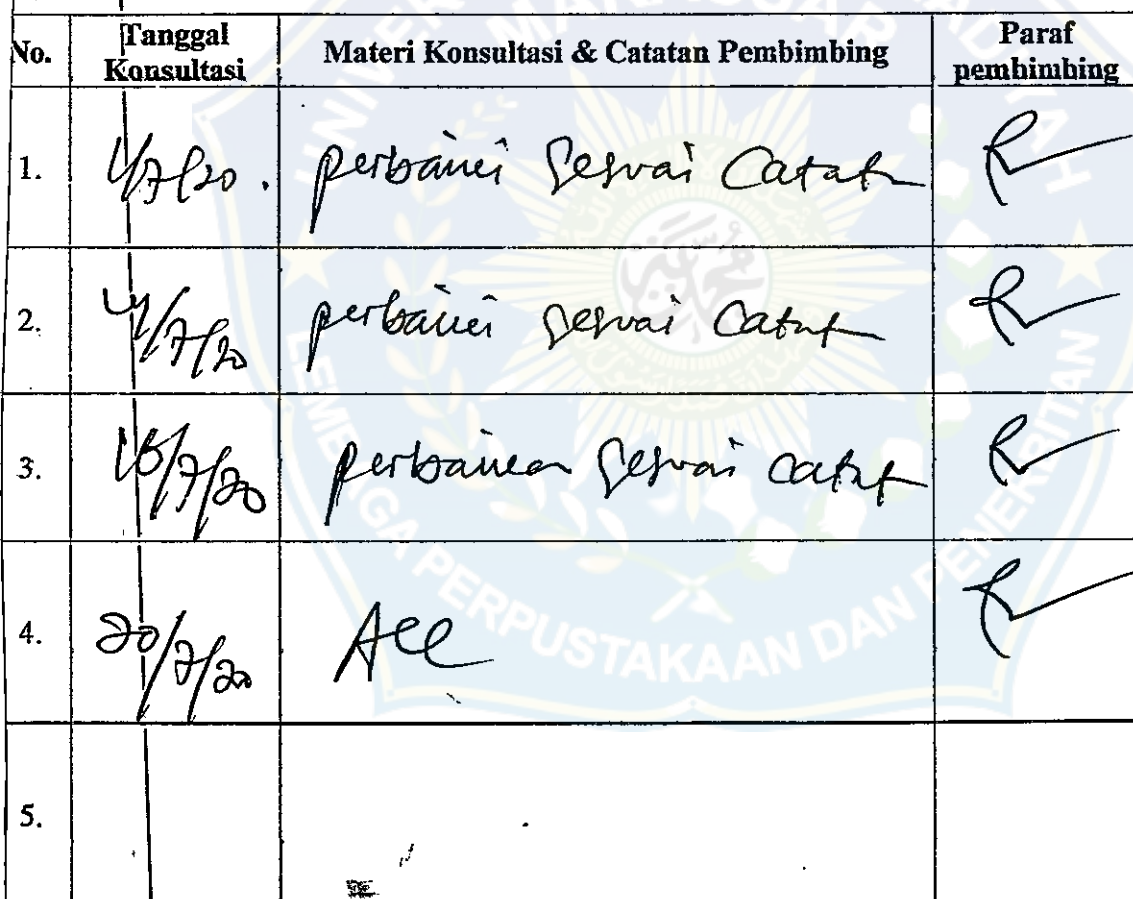 No. Tanggal Konsultasi Materi Konsultasi & Catatan Pembimbing Paraf pembimbing
1. /7/20. perbaiki sesuai Catatan
2. /7/20 perbaiki sesuai Catatan
3. /7/20 perbaikan sesuai catatan
4. 20/7/20 Acc
5.
LEMBAGA PERPUSTAKAAN DAN PENERBITAN